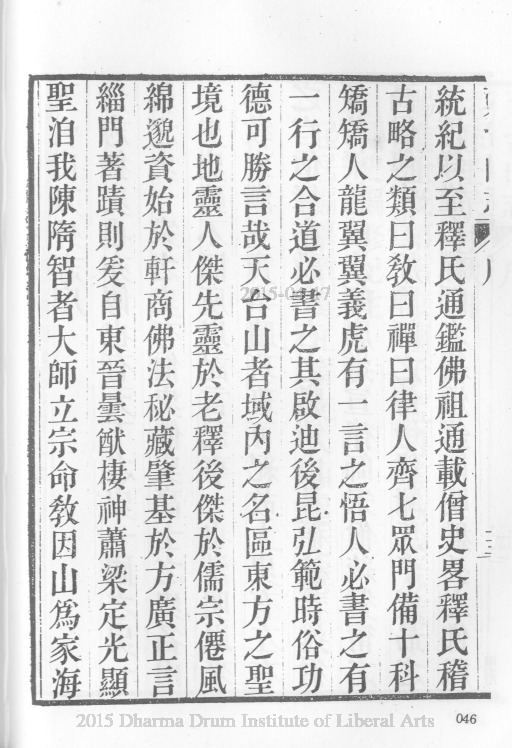 統紀以至釋氏通鑑佛祖通載僧史畧釋氏稽
古略之類曰敎曰禪曰律人齊七眾門備十科
矯矯人龍翼翼義虎有一言之悟人必書之有
一行之合道必書之其啟迪後昆弘範時俗功
德可勝言哉天台山者域內之名區東方之聖
境也地靈人傑先靈於老釋後傑於儒宗僊風
綿邈資始於軒商佛法秘藏肇基於方廣正言
緇門著蹟則爰自東晉曇猷棲神蕭梁定光顯
聖洎我陳隋智者大師立宗命敎因山爲家海
2015-04-17
2015 Dharma Drum Institute of Liberal Arts
046